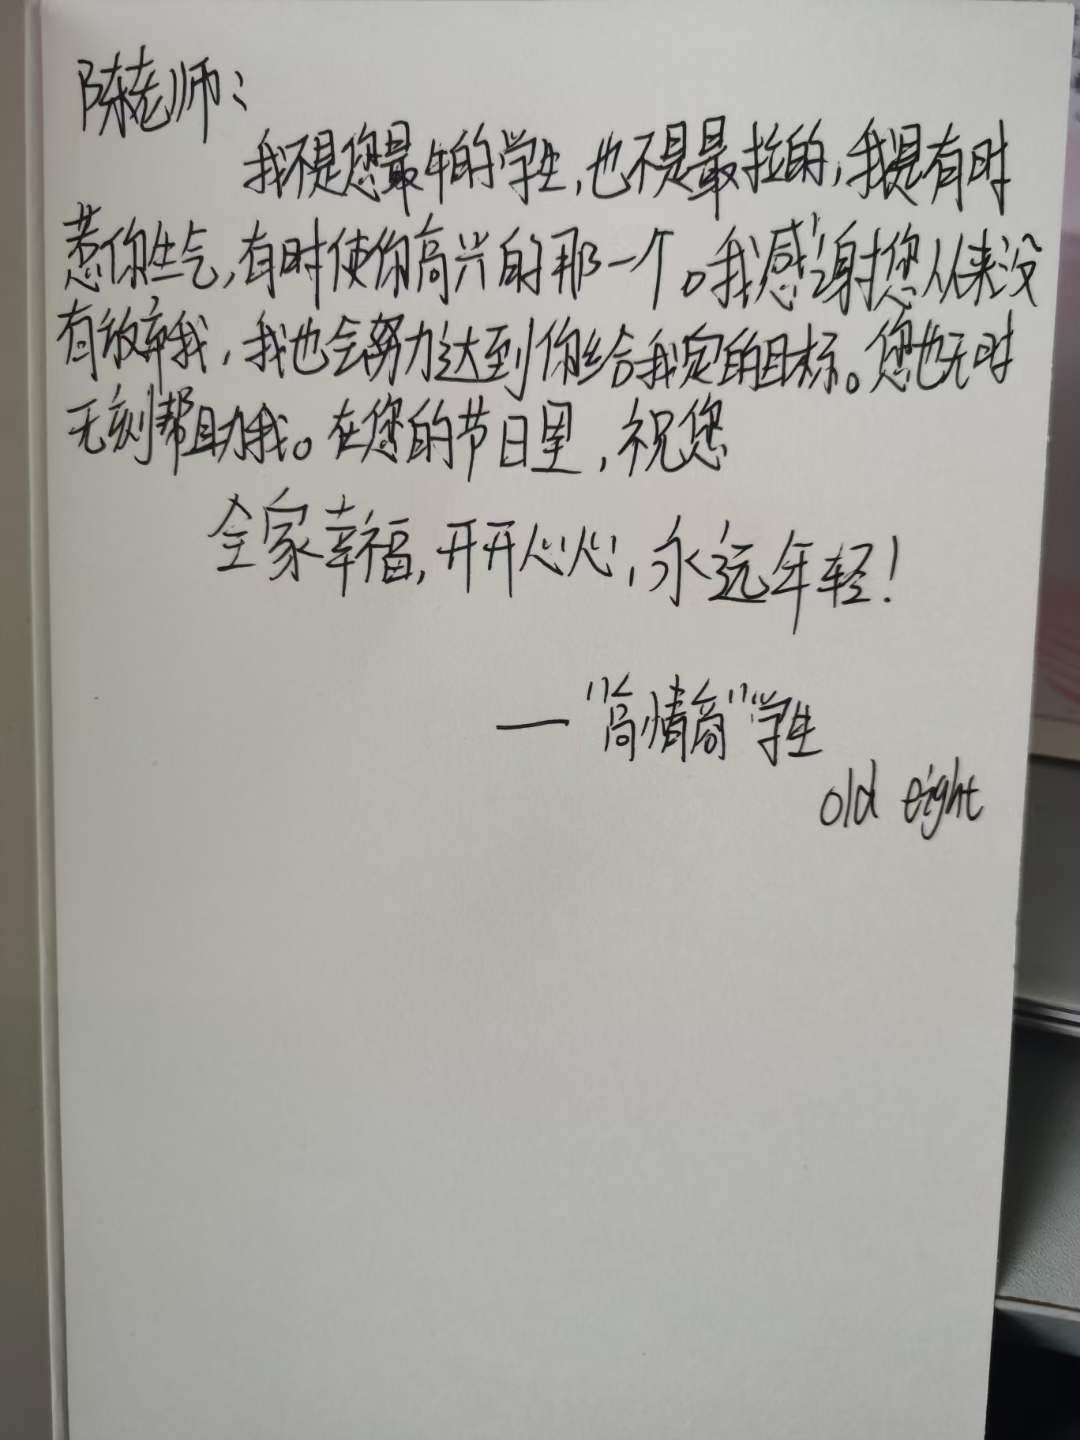 陈老师：
我不是您最牛的学生，也不是最拉的，我是有时
惹你生气，有时使你高兴的那一个。我感谢您从来没
有放弃我，我也会努力达到你给我定的目标。您也无时
无刻帮助我。在您的节日里，祝您
全家幸福，开开心心，永远年轻！
——“高情商”学生
old eight